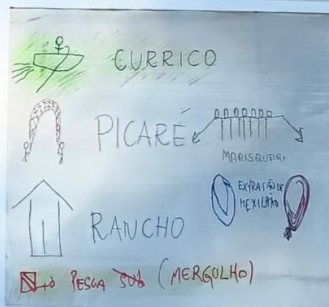 CURRICO
PICARÉ
MARISQUEIRA
EXTRAÇÃO DE
MEXILHÃO
RANCHO
PESCA SUB (MERGULHO)